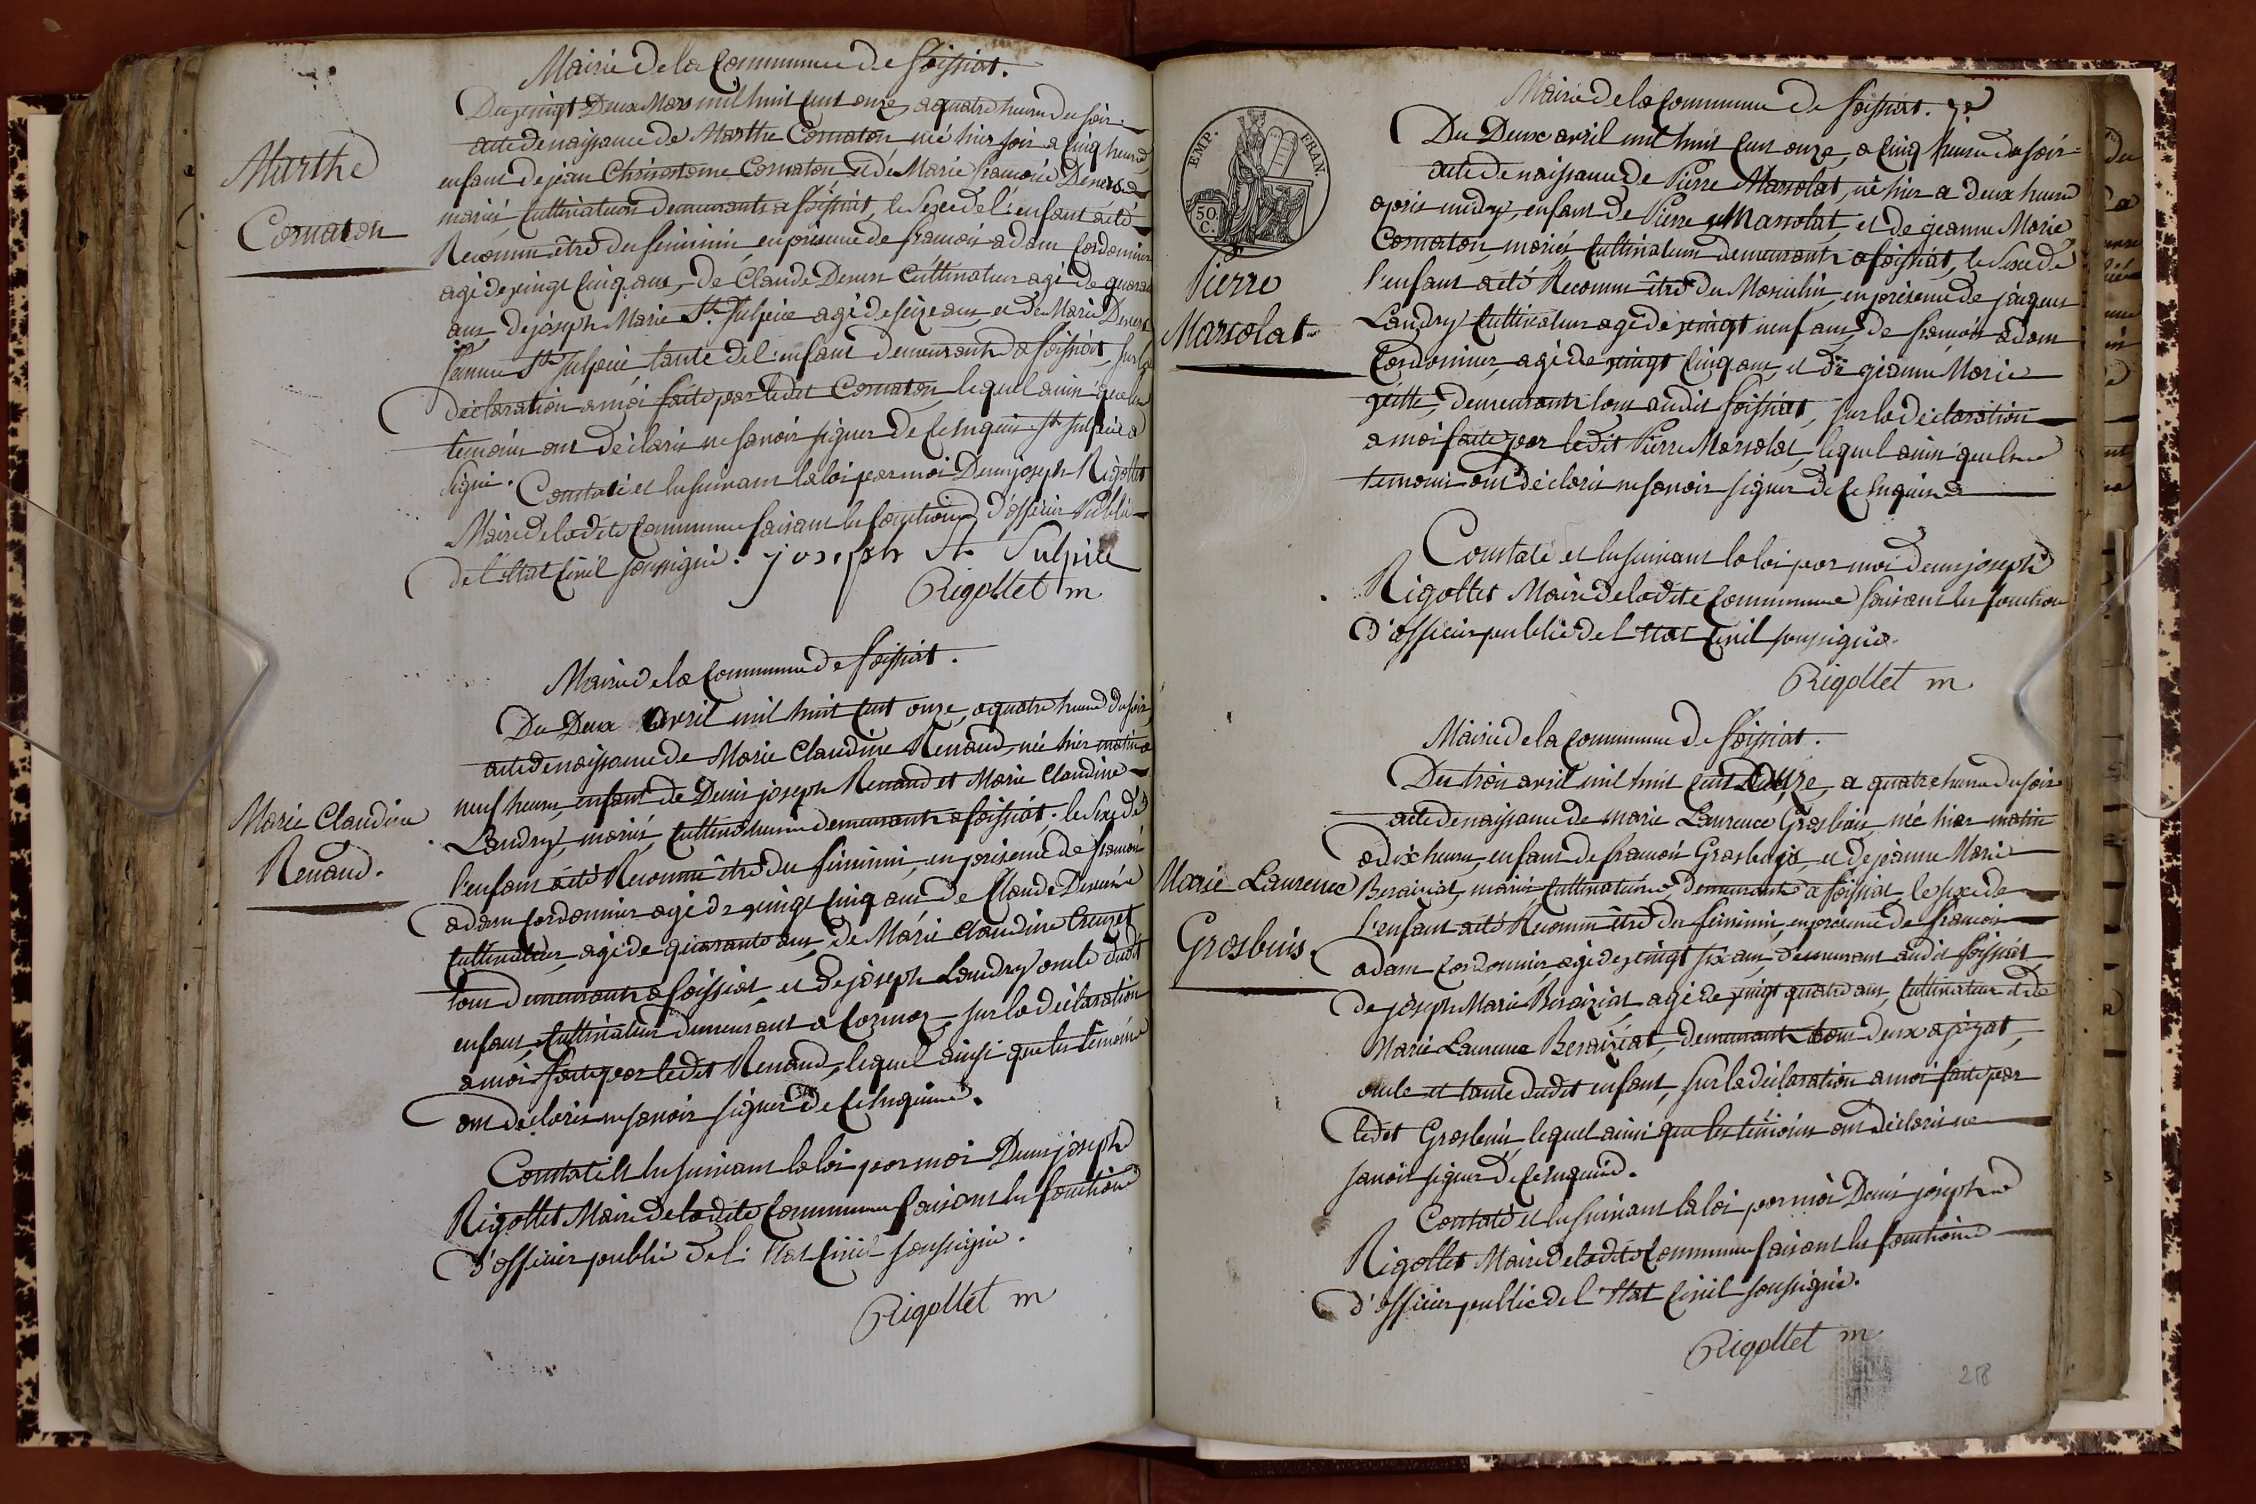 Mairie de la Commune de foissiat.
Du vingt Deux Mars mil huit Cent onze, a quatre heures du soir
acte de naissance de Marthe Cornaton né hier soir a Cinq heures
enfant de jean Chrisostome Cornaton et de Marie francoise
mariés, Cultivateurs demeurants a foissiat, le Sexe de l'enfant a été
Reconnu être du féminin, en présence de francois adam Cordonnier
agé de vingt Cinq ans, de Claude Cultivateur agé de
ans, de joseph Marie St. Sulpice agé de seize ans, et de Marie
femme St. Sulpice, tante de l'enfant demeurants a foissiat, sur la
déclaration a moi faite par ledit Cornaton, lequel ainsi que les
temoins ont déclaré ne savoir signer de Ce Enquis St. Sulpice a
signé. Constaté et lu suivant la loi par moi Denis joseph Rigollet
Maire de la dite Commune faisant les fonctions d'officier Public
de l'Etat Civil soussigné. joseph St Sulpice
Rigollet m
Marthe
Cornaton
Mairie de la Commune de foissiat.
Du Deux avril mil huit Cent onze, a quatre heures du soir
acte de naissance de Marie Claudine Renaud, née hier matin a
neuf heures, enfant de Denis joseph Renaud et Marie Claudine
Landry, mariés, Cultivateurs demeurants a foissiat, le Sexe de
l'enfant a été Reconnu être du féminin, en présence de francois
adam Cordonnier agé de vingt Cinq ans, de Claude
Cultivateur, agé de quarante ans, de Marie Claudine Creuzet
tous demeurants a foissiat, et de joseph Landry oncle dudit
enfant, Cultivateur demeurant a Cormoz, sur la déclaration
a moi faite par ledit Renaud, lequel ainsi que les temoins
ont déclaré ne savoir signer de Ce Enquis.
Constaté et lu suivant la loi par moi Denis joseph
Rigollet Maire de la dite Commune faisant les fonctions
d'officier public de l'Etat Civil soussigné.
Rigollet m
Marie Claudine
Renaud.
Mairie de la Commune de foissiat.
Du Deux avril mil huit Cent onze, a Cinq heures du soir
acte de naissance de Pierre Marsolat, né hier a deux heures
après midy, enfant de Pierre Marsolat, et de jeanne Marie
Cornaton, mariés Cultivateurs demeurants a foissiat, le Sexe de
l'enfant a été Reconnu être du Masculin, en présence de jacques
Landry Cultivateur agé de vingt neuf ans, de francois adam
Cordonnier, agé de vingt Cinq ans, et de jeanne Marie
demeurants tous audit foissiat, sur la déclaration
a moi faite par ledit Pierre Marsolat, lequel ainsi que les
temoins ont déclaré ne savoir signer de Ce Enquis
Constaté et lu suivant la loi par moi denis joseph
Rigollet Maire de la dite Commune faisant les fonctions
d'officier public de l'Etat Civil soussigné.
Rigollet m
EMP. FRAN.
50.
C.
Pierre
Marsolat
Mairie de la Commune de foissiat.
Du trois avril mil huit Cent Onze, a quatre heures du soir
acte de naissance de marie Laurence Grosbuis, né hier matin
a dix heures, enfant de francois Grosbuis, et de jeanne Marie
Beraiziat, mariés, Cultivateurs demeurants a foissiat, le sexe de
l'enfant a été Reconnu être du féminin, en présence de francois
adam Cordonnier, agé de vingt six ans, demeurant audit foissiat
de joseph Marie Beraiziat, agé de vingt quatre ans, Cultivateur et de
Marie Laurence Beraiziat, demeurants tous deux a jayat,
oncle et tante dudit enfant, sur la déclaration a moi faite par
ledit Grosbuis lequel ainsi que les témoins ont déclaré ne
savoir signer de Ce Enquis.
Constaté et lu suivant la loi par moi Denis joseph
Rigollet Maire de la dite Commune faisant les fonctions
d'officier public de l'Etat Civil soussigné.
Rigollet m
Marie Laurence
Grosbuis.
218